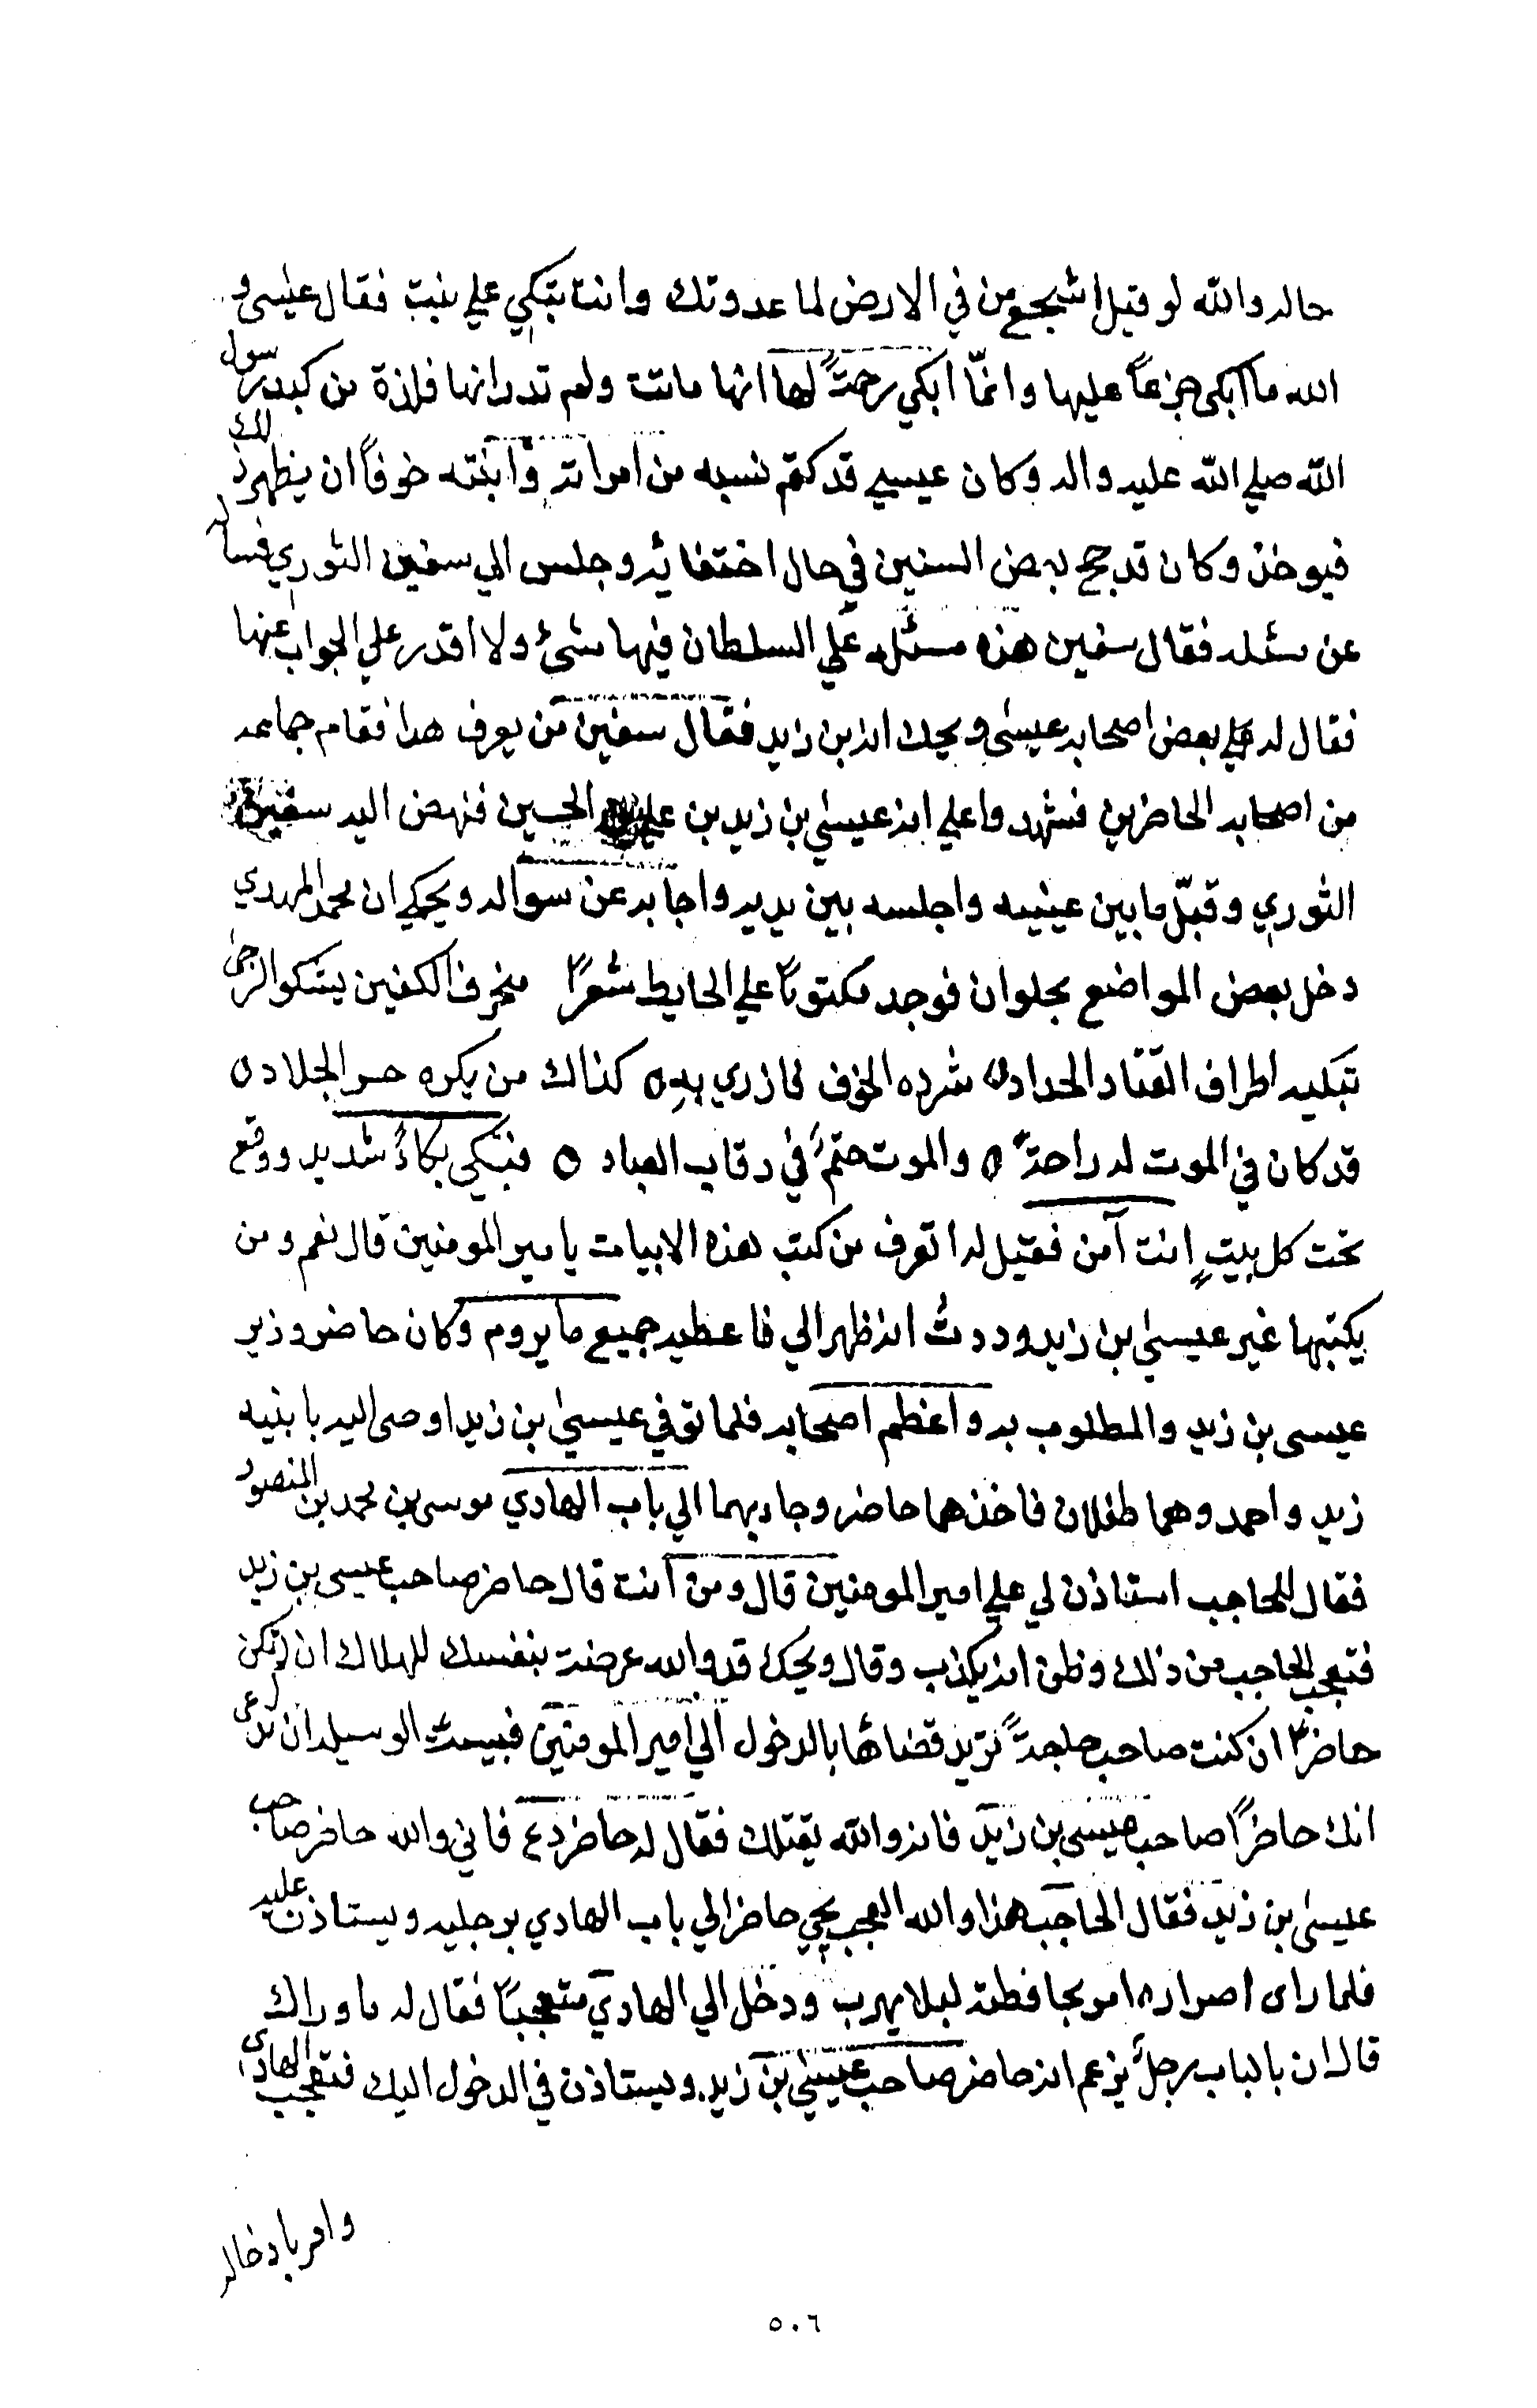 حاله والله لو قيل اشجع من في الارض لما عدوتك وانت تبكي علي بنت فقال عيسى و
الله ما ابكى جزعاً عليها وانمّا ابكي رحمتاً لها انها ماتت ولم تدر انها فلذة من كبد رسول
الله صلي الله عليه واله وكان عيسي قد كتم نسبه من امراته وابنته خوفاً ان يظهر ذلك
فيوخذ وكان قد حج بعض السنين في حال اختفائه وجلس الي سفين الثوري فساله
عن مسئله فقال سفين هذه مسئله علي السلطان فيها شئ ولا اقدر علي الجواب عنها
فقال له بعض اصحابه عيسى ويحك انه بن زيد فقال سفين من يعرف هذا فقام جماعه
من اصحابه الحاضرين فشهدوا علي انه عيسىٰ بن زيد بن علي بن الحسين فنهض اليه سفين
الثوري وقبّل ما بين عينيه واجلسه بين يديه واجابه عن سواله ويحكي ان محمد المهدي
دخل بعض المواضع بحلوان فوجد مكتوباً علي الحايط شعراً منخرف الكفين يشكو الوجى
تبكيه اطراف القتاد الحداد ه شرده الخوف فازري به ه كذاك من يكره حر الجلاد ه
قد كان في الموت له راحةً ه والموت حتمٌ في رقاب العباد ه فبكي بكاءً شديد ووقع
تحت كل بيتٍ انت آمن فقيل له اتعرف من كتب هذه الابيات يا مير المومنين قال نعم ومن
يكتبها غير عيسىٰ بن زيد وددتُ انه ظهر الي فاعطيه جميع ما يروم وكان حاضر وزير
عيسى بن زيد والمطلوب به واعظم اصحابه فلما توفي عيسىٰ بن زيد اوصى اليه بابنيه
زيد واحمد وهما طفلان فاخذهما حاضر وجاء بهما الي باب الهادي موسى بن محمد بن المنصور
فقال للحاجب استاذن لي علي امير المومنين قال ومن انت قال حاضر صاحب عيسى بن زيد
فتعجب الحاجب من ذلك وظن انه يكذب وقال ويحك قد والله عرضت بنفسك للهلاك ان لم تكن
حاضراً ان كنت صاحب حاجةً تريد قضائها بالدخول الي امير المومنين فبيست الوسيله ان تدعى
انك حاضراً صاحب عيسى بن زيد فانه والله يقتلك فقال له حاضر دع فاني والله حاضر صاحب
عيسىٰ بن زيد فقال الحاجب هذا والله العجب يجي حاضر الي باب الهادي برجليه ويستاذن عليه
فلما راى اصراره امر بحافظته ليلا يهرب ودخل الي الهادي متعجباً فقال له ما وراك
قال ان بالباب رجلٌ يزعم انه حاضر صاحب عيسىٰ بن زيد ويستاذن في الدخول اليك فتعجب الهادى
وامر بادخاله
٥٠٦